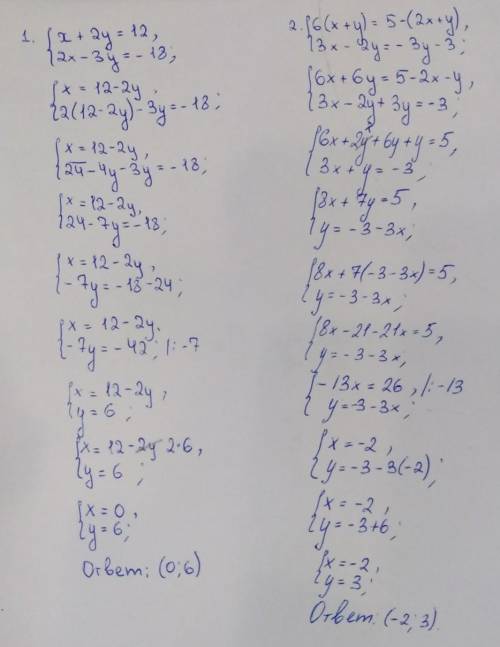 1. { x + 2y = 12,
2x - 3y = -18;
{ x = 12 - 2y,
2(12 - 2y) - 3y = -18;
{ x = 12 - 2y,
24 - 4y - 3y = -18;
{ x = 12 - 2y,
24 - 7y = -18;
{ x = 12 - 2y,
-7y = -18 - 24;
{ x = 12 - 2y,
-7y = -42; /: -7
{ x = 12 - 2y,
y = 6;
{ x = 12 - 2y 2·6,
y = 6;
{ x = 0,
y = 6;
Ответ: (0; 6)
2. { 6(x + y) = 5 - (2x + y),
3x - 2y = -3y - 3;
{ 6x + 6y = 5 - 2x - y,
3x - 2y + 3y = -3;
{ 6x + 2x + 6y + y = 5,
3x + y = -3;
{ 8x + 7y = 5,
y = -3 - 3x;
{ 8x + 7(-3 - 3x) = 5,
y = -3 - 3x;
{ 8x - 21 - 21x = 5,
y = -3 - 3x;
{ -13x = 26, /: -13
y = -3 - 3x;
{ x = -2,
y = -3 - 3(-2);
{ x = -2,
y = -3 + 6;
{ x = -2,
y = 3;
Ответ: (-2; 3).